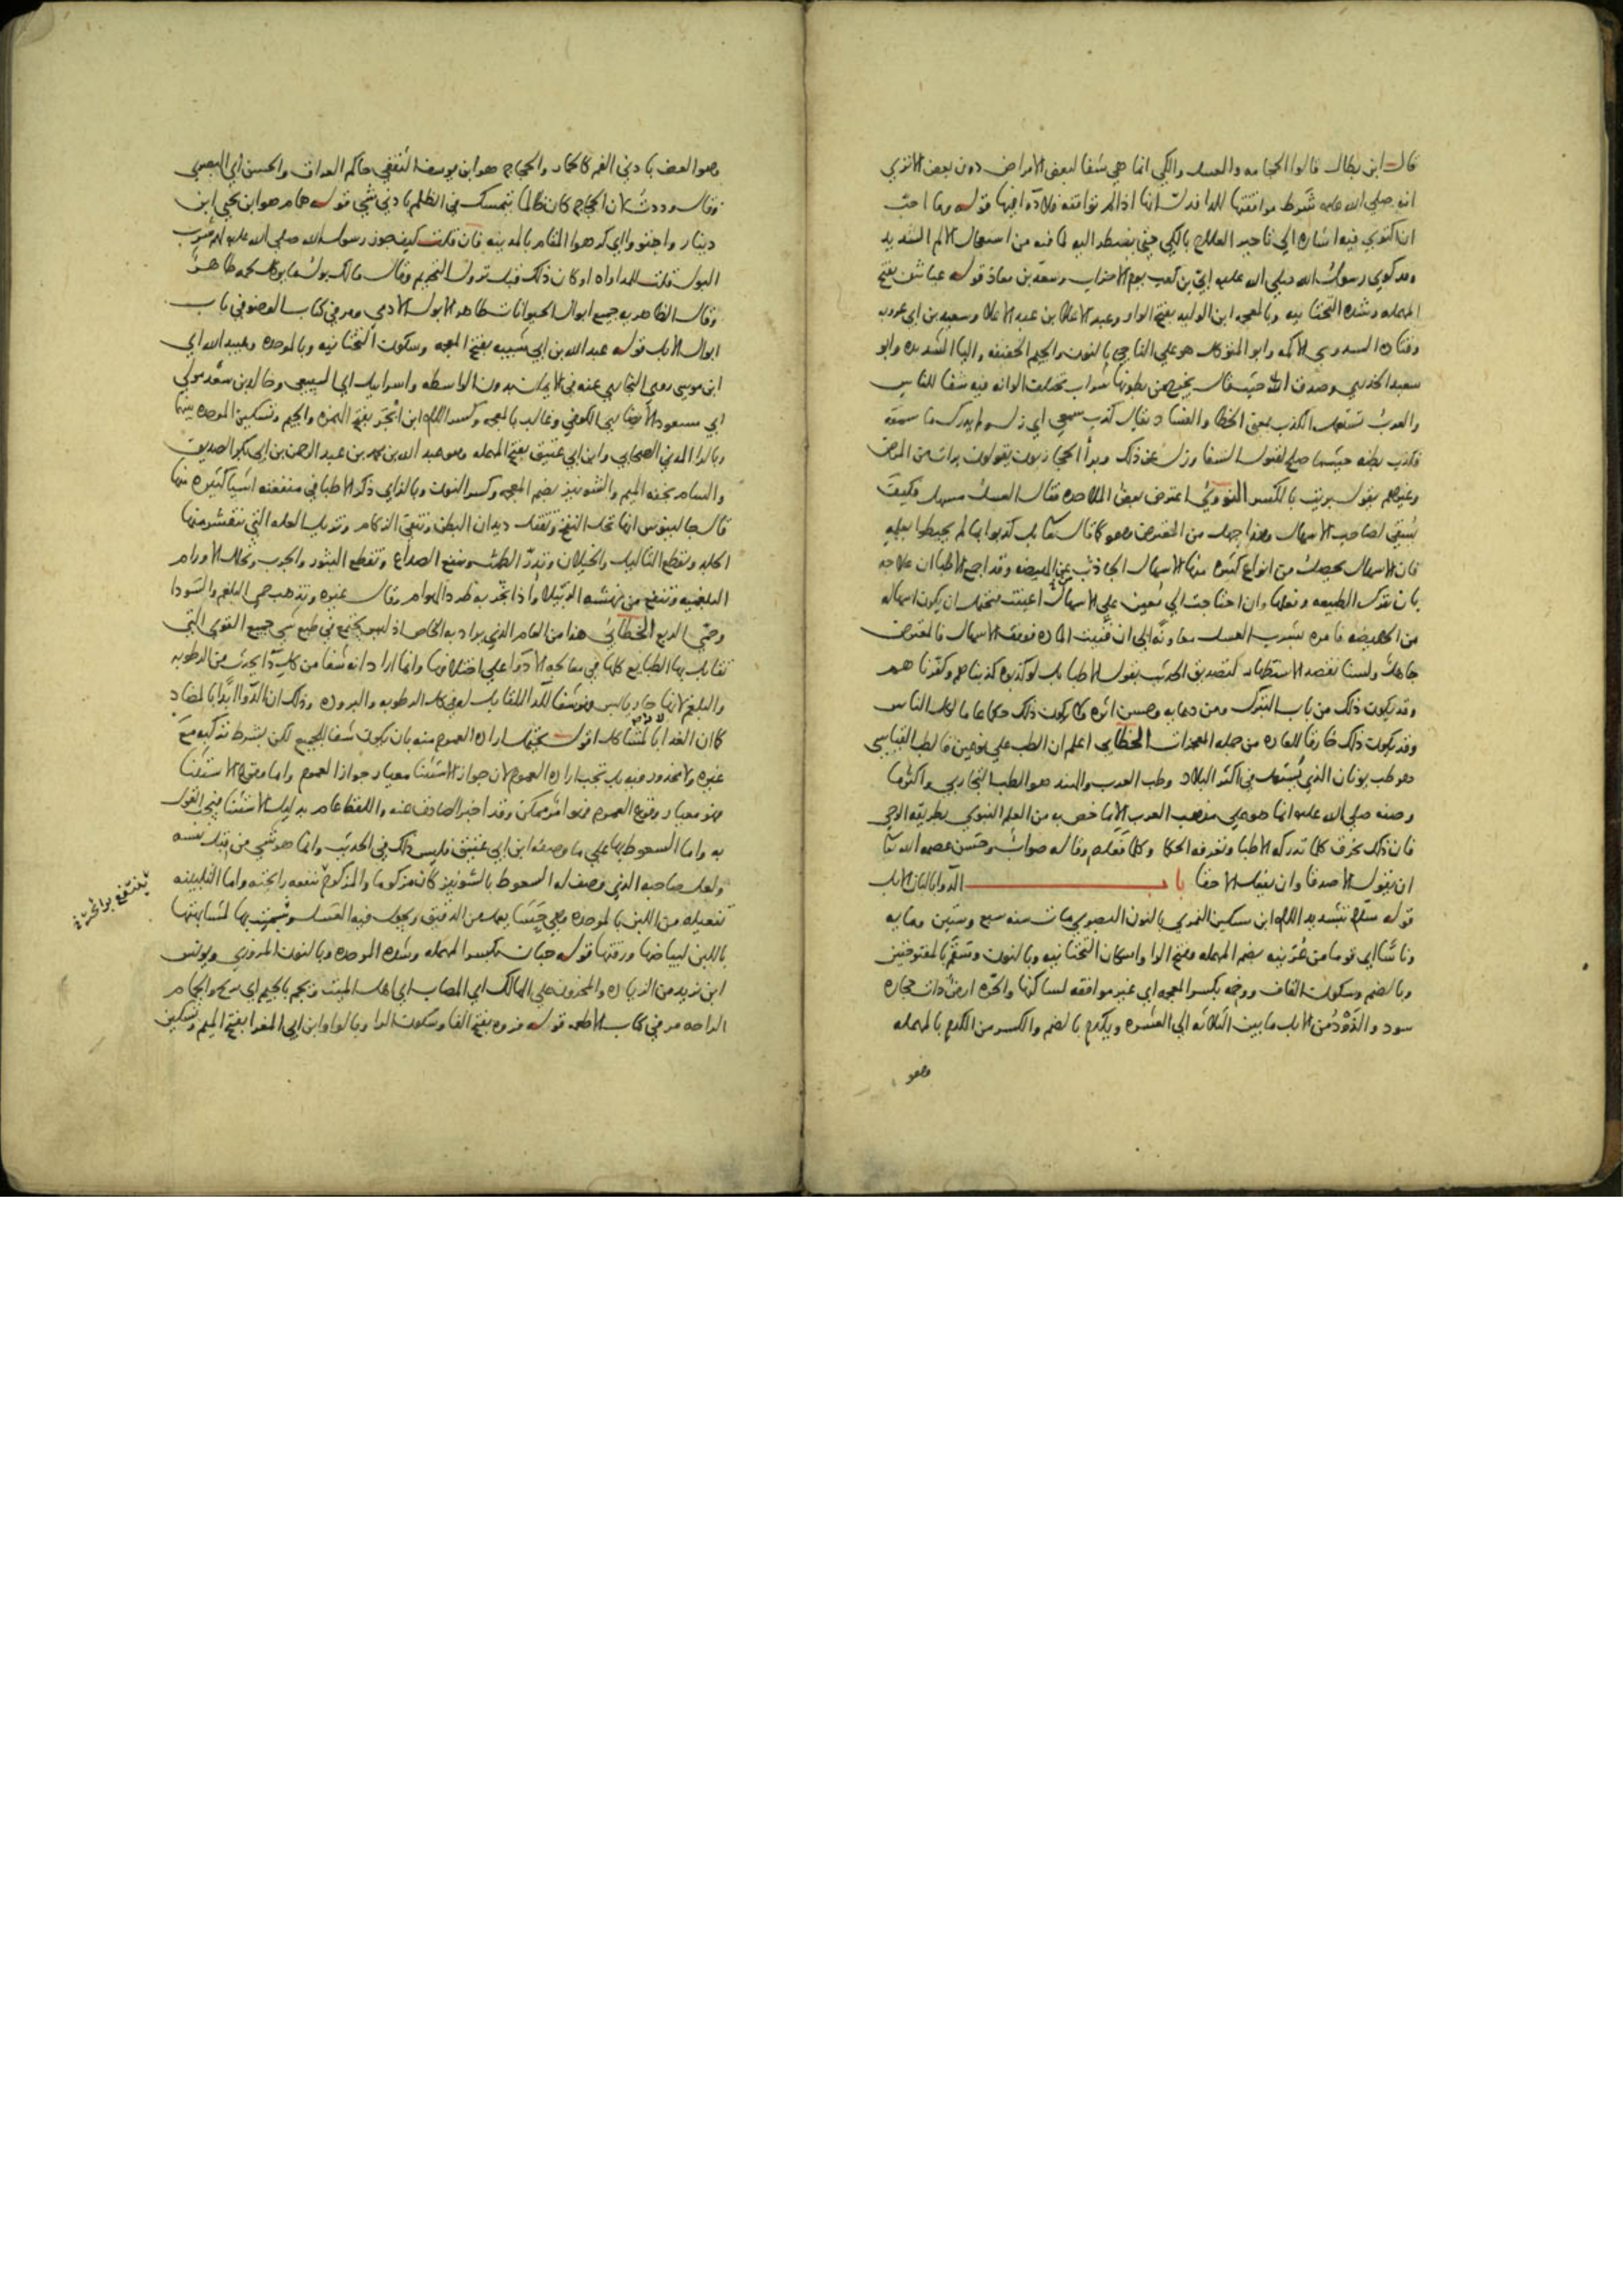 قال ابن بطال قالوا الحجامه والعسل والكي انما هي شفا لبعض الامراض دون بعض الا تري
انه صلي الله عليه شرط موافقتها للدا فدل انها اذا لم توافقه فلا دوا فيها قوله وما احب
ان اكتوي فيه اشاره الي تاخير العلاج بالكي حتي يضطر اليه لما فيه من استعمال الالم الشديد
وقد كوي رسول الله صلي الله عليه ابي بن كعب يوم الاحزاب وسعد بن معاذ قوله عياش بفتح
المهمله وشده التحتانيه وبالمعجمه ابن الوليد بفتح الواو وعبد الاعلا بن عبد الاعلا وسعيد بن ابي عروبه
وقتاده السدوسي الاكمه وابو المتوكل هو علي الناجي بالنون والجيم الخفيفه والياء الشديده وابو
سعيد الخدري وصدق الله حيث قال يخرج من بطونها شراب مختلف الوانه فيه شفا للناس
والعرب تستعمل الكذب بمعني الخطا والفساد يقال كذب سمعي اي زل ولم يدرك ما سمعه
فكذب بطنه حيث ما صلح لقبول الشفا وزل عن ذلك وبرا الحجازيون يقولون برات من المرض
وغيرهم يقول بريت بالكسر النووي اعترض بعض الملاحده فقال العسل مسهل فكيف
يشفي لصاحب الاسهال وهذا جهل من المعترض وهو كما قال تعالى بل كذبوا بما لم يحيطوا بعلمه
فان الاسهال يحصل من انواع كثيره منها الاسهال الحادث عن الهيضه وقد اجمع الاطبا ان علاجه
بان تترك الطبيعه وفعلها وان احتاجت الي معين علي الاسهال اعينت فيحتمل ان يكون اسهاله
من الهيضه فامره بشرب العسل معاونه الي ان فنيت الماده فوقف الاسهال فالمعترض
جاهل ولسنا نقصد الاستظهار لتصديق الحديث بقول الاطبا بل لو كذبوه كذبناهم وكفرناهم
وقد يكون ذلك من باب التبرك ومن دعايه وحسن اثره ولا يكون ذلك حكما عاما لكل الناس
وقد يكون ذلك خارقا للعاده من جمله المعجزات الخطابي اعلم ان الطب علي نوعين فالطب القياسي
هو طب يونان الذي يستعمل في اكثر البلاد وطب العرب والهند هو الطب التجاربي واكثر ما
وصفه صلي الله عليه انما هو علي مذهب العرب الا ما خص به من العلم النبوي بطريقه الوحي
فان ذلك يخرق كل ما تدركه الاطبا وتعرفه الحكما وكل ما فعله وقاله صواب وحسن عصمه الله تعالى
ان يقول الا صدقا وان يفعل الا حقا باب الدوا بالبان الابل
قوله سلام بتشديد اللام ابن مسكين النمري بالنون البصري مات سنه سبع وستين ومايه
وناسا اي قوما من عرينه بضم المهمله وفتح الرا واسكان التحتانيه وبالنون وسقم بالمفتوحتين
وبالضم وسكون القاف ووخمه بكسر المعجمه اي غير موافقه لساكنها والحره ارض ذات حجاره
سود والذود من الابل ما بين الثلاثه الي العشره ويكدم بالضم والكسر من الكدم بالمهمله
وهو
وهو العض بادني الفم كالحمار والحجاج هو ابن يوسف الثقفي حاكم العراق والحسن اي البصري
وقال وددت لان الحجاج كان ظالما يتمسك في الظلم بادني شي قوله همام هو ابن يحيي ابن
دينار واجتووا اي كرهوا المقام بالمدينه فان قلت كيف جوز رسول الله صلي الله عليه لهم شرب
البول قلت للمداواه او كان ذلك قبل نزول التحريم وقال مالك بول ما يوكل لحمه طاهر
وقال الظاهريه جميع ابوال الحيوانات طاهر الا بول الادمي ومر في كتاب الوضو في باب
ابوال الابل قوله عبد الله بن ابي شيبه بفتح المعجمه وسكون التحتانيه وبالموحده وعبيد الله اي
ابن موسي روي البخاري عنه في الايمان بدون الواسطه واسراييل اي السبيعي وخالد بن سعد مولي
ابي مسعود الانصاري الكوفي وغالب بالمعجمه وكسر اللام ابن ابجر بفتح الهمزه والجيم وتسكين الموحده بينهما
وبالرا المدني الصحابي وابن ابي عتيق بفتح المهمله وهو عبد الله بن محمد بن عبد الرحمن بن ابي بكر الصديق
والسام بخفه الميم والشونيز بضم المعجمه وكسر النون وبالزاي ذكر الاطبا في منفعته اشيا كثيره منها
قال جالينوس انها تحلل النفخ وتقتل ديدان البطن وتنفي الزكام وتزيل العله التي تتقشر منها
الجلد وتقطع الثاليل والخيلان وتدر الطمث وتنفع الصداع وتقطع البثور والجرب وتحلل الاورام
البلغميه وتنفع من نهشه الرتيلا واذا بخر به طرد الهوام وقال غيره وتذهب حمي البلغم والسودا
وحمي الربع الخطابي هذا من العام الذي يراد به الخاص اذ ليس يجتمع في طبع شي جميع القوي التي
تقابل بها الطبايع كلها في معالجه الادوا علي اختلافها وانما اراد انه شفا من كل دا يحدث من الرطوبه
والبلغم لانها حار يابس فهو شفا للدا المقابل له في الرطوبه والبروده وذلك ان الدوا ابدا بالمضاد
كما ان الغدا بالمشاكل اقول يحتمل اراده العموم منه بان يكون شفا للجميع لكن بشرط تركيبه مع
غيره ولا محذور فيه بل تجب اراده العموم لان جواز الاستثنا معيار جواز العموم واما وقوع الاستثنا
فهو معيار وقوع العموم فهو امر ممكن وقد اخبر الصادق عنه واللفظ عام بدليل الاستثنا فيجب القول
به واما السعوط بها علي ما وصفه ابن ابي عتيق فليس ذلك في الحديث وانما هو شي من قبل نفسه
ولعل صاحبه الذي وصف له السعوط بالشونيز كان مزكوما والمزكوم ينفعه رايحته واما التلبينه
تفعيله من اللبن بالموحده وهي حسا يعمل من الدقيق ويجعل فيه العسل وسميت بها لمشابهتها
باللبن لبياضها ورقتها قوله حبان بكسر المهمله وشده الموحده وبالنون المروزي ويونس
ابن يزيد من الزياده والمحزون علي الهالك اي المصاب اي اهل الميت وتجم بالجيم اي تريح والجمام
الراحه مر في كتاب الاطعمه قوله فروه بفتح الفا وسكون الرا وبالواو ابن ابي المغرا بفتح الميم وتسكين
ينتفع برائحته